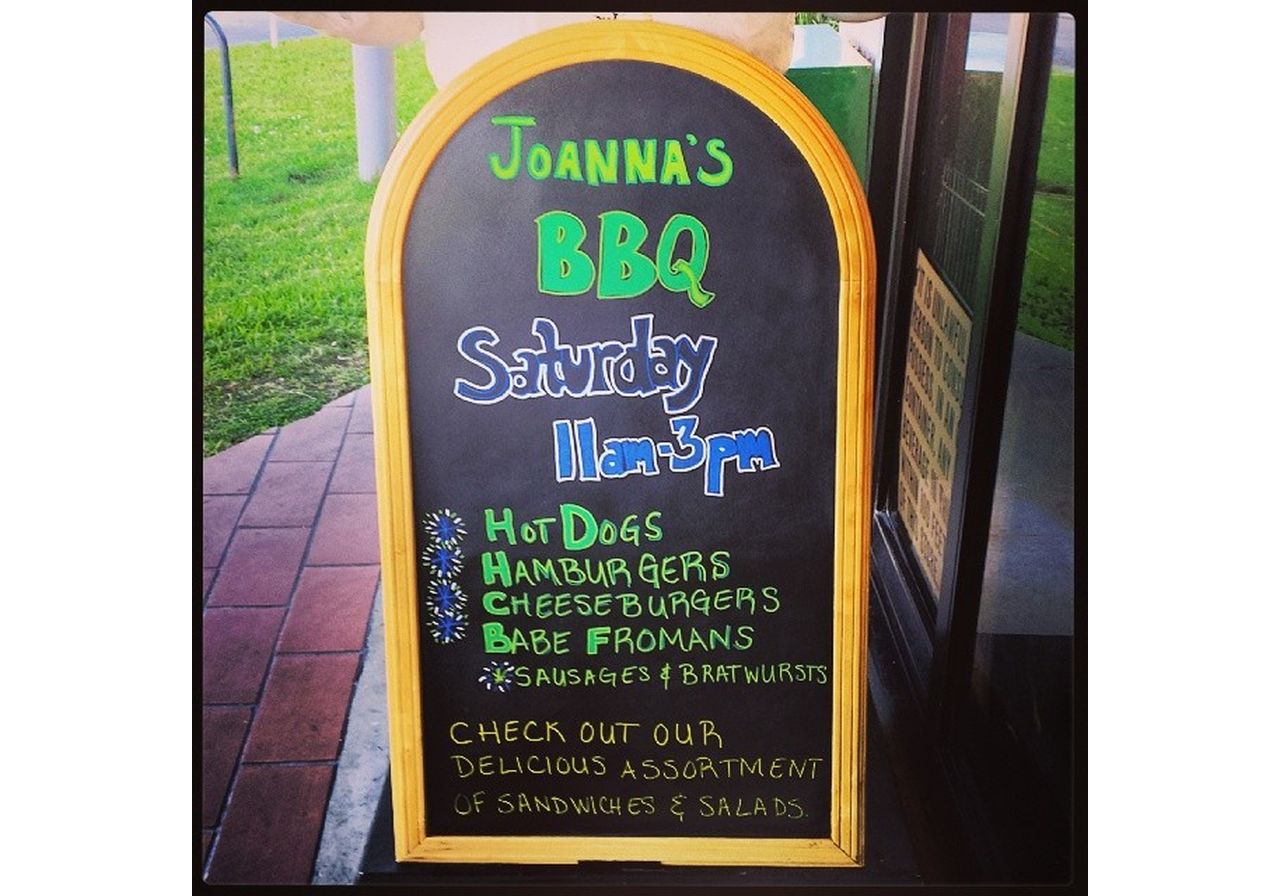 JOANNA'S
BBQ
Saturday
11am-3pm
HOT DOGS
HAMBURGERS
CHEESEBURGERS
BABE FROMANS
*SAUSAGES & BRATWURSTS
CHECK OUT OUR
DELICIOUS ASSORTMENT
OF SANDWICHES & SALADS.
IT IS UNLAWFUL